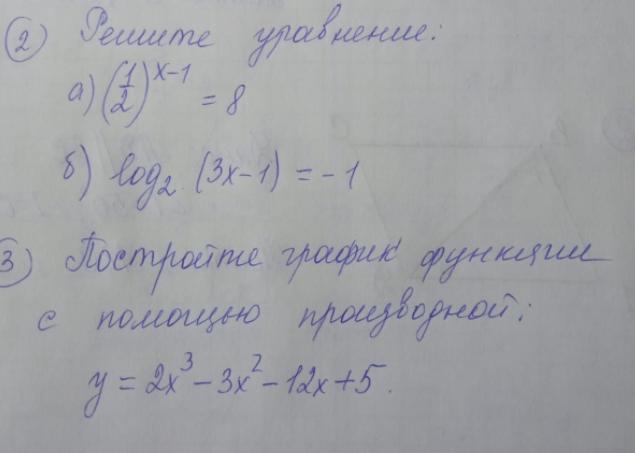 2) Решите уравнение:
а) (1/2)^(x-1) = 8
б) log₂ (3x-1) = -1
3) Постройте график функции
с помощью производной:
y = 2x³ - 3x² - 12x + 5.